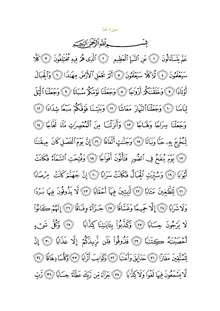 سورة النبأ
بِسْمِ ٱللَّهِ ٱلرَّحْمَٰنِ ٱلرَّحِيمِ
عَمَّ يَتَسَآءَلُونَ ١ عَنِ ٱلنَّبَإِ ٱلْعَظِيمِ ٢ ٱلَّذِى هُمْ فِيهِ مُخْتَلِفُونَ ٣ كَلَّا
سَيَعْلَمُونَ ٤ ثُمَّ كَلَّا سَيَعْلَمُونَ ٥ أَلَمْ نَجْعَلِ ٱلْأَرْضَ مِهَٰدًا ٦ وَٱلْجِبَالَ
أَوْتَادًا ٧ وَخَلَقْنَٰكُمْ أَزْوَٰجًا ٨ وَجَعَلْنَا نَوْمَكُمْ سُبَاتًا ٩ وَجَعَلْنَا ٱلَّيْلَ
لِبَاسًا ١٠ وَجَعَلْنَا ٱلنَّهَارَ مَعَاشًا ١١ وَبَنَيْنَا فَوْقَكُمْ سَبْعًا شِدَادًا ١٢
وَجَعَلْنَا سِرَاجًا وَهَّاجًا ١٣ وَأَنزَلْنَا مِنَ ٱلْمُعْصِرَٰتِ مَآءً ثَجَّاجًا ١٤
لِّنُخْرِجَ بِهِۦ حَبًّا وَنَبَاتًا ١٥ وَجَنَّٰتٍ أَلْفَافًا ١٦ إِنَّ يَوْمَ ٱلْفَصْلِ كَانَ مِيقَٰتًا
١٧ يَوْمَ يُنفَخُ فِى ٱلصُّورِ فَتَأْتُونَ أَفْوَاجًا ١٨ وَفُتِحَتِ ٱلسَّمَآءُ فَكَانَتْ
أَبْوَٰبًا ١٩ وَسُيِّرَتِ ٱلْجِبَالُ فَكَانَتْ سَرَابًا ٢٠ إِنَّ جَهَنَّمَ كَانَتْ مِرْصَادًا
٢١ لِّلطَّٰغِينَ مَـَٔابًا ٢٢ لَّٰبِثِينَ فِيهَآ أَحْقَابًا ٢٣ لَّا يَذُوقُونَ فِيهَا بَرْدًا
وَلَا شَرَابًا ٢٤ إِلَّا حَمِيمًا وَغَسَّاقًا ٢٥ جَزَآءً وِفَاقًا ٢٦ إِنَّهُمْ كَانُوا۟
لَا يَرْجُونَ حِسَابًا ٢٧ وَكَذَّبُوا۟ بِـَٔايَٰتِنَا كِذَّابًا ٢٨ وَكُلَّ شَىْءٍ
أَحْصَيْنَٰهُ كِتَٰبًا ٢٩ فَذُوقُوا۟ فَلَن نَّزِيدَكُمْ إِلَّا عَذَابًا ٣٠ إِنَّ
لِلْمُتَّقِينَ مَفَازًا ٣١ حَدَآئِقَ وَأَعْنَٰبًا ٣٢ وَكَوَاعِبَ أَتْرَابًا ٣٣ وَكَأْسًا دِهَاقًا ٣٤
لَّا يَسْمَعُونَ فِيهَا لَغْوًا وَلَا كِذَّٰبًا ٣٥ جَزَآءً مِّن رَّبِّكَ عَطَآءً حِسَابًا ٣٦ رَّبِّ